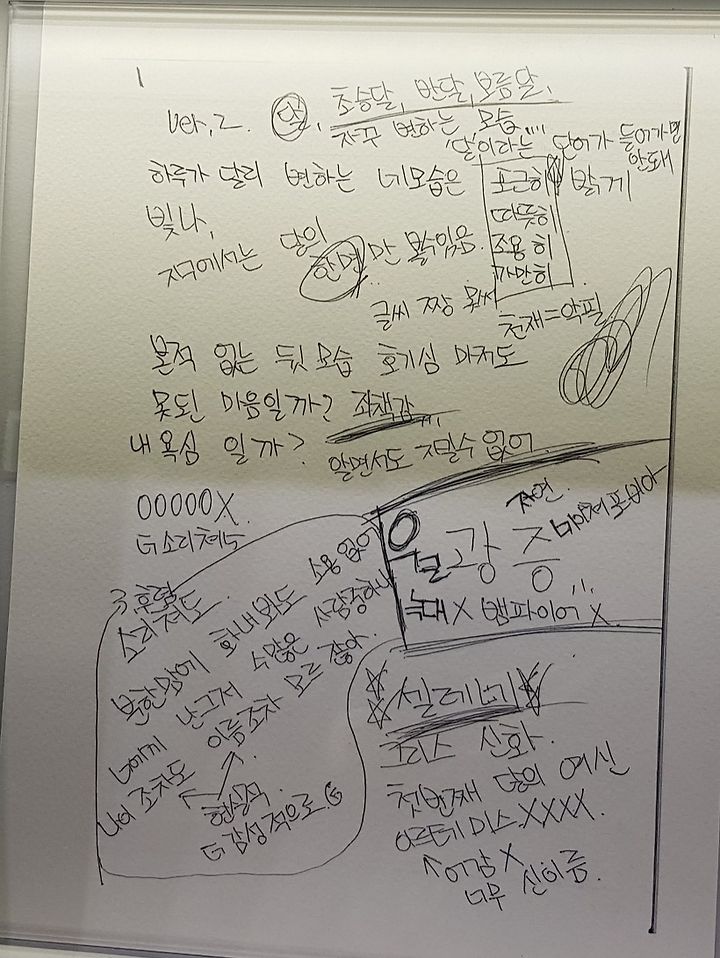 1
ver.2. 달, 초승달, 반달, 보름달,
자꾸 변하는 모습....
'달'이라는 단어가 들어가면
안돼
하루가 달리 변하는 네모습은 포근히 밝게
따뜻히
조용히
가만히
빛나,
지구에서는 달의
한면만 볼수있음.
글씨 짱 못써
천재=악필
본적 없는 뒷 모습 호기심 마저도
못된 마음일까? 죄책감,,,
내 욕심 일까? 알면서도 멈출수 없어
OOOOOX
더 소리쳐도
자연.
강증
늑대X 뱀파이어X...
3, 후렴
소리쳐도
분한맘에 화내봐도 소용 없어
너에게 난 그저 수많은 사람중하나
나의 조차도 이름조차 모르잖아.
현실적
더 감성적으로
셀레네
그리스 신화.
첫번째 달의 여신
아르테미스.XXXX
어감X
너무 신이름.